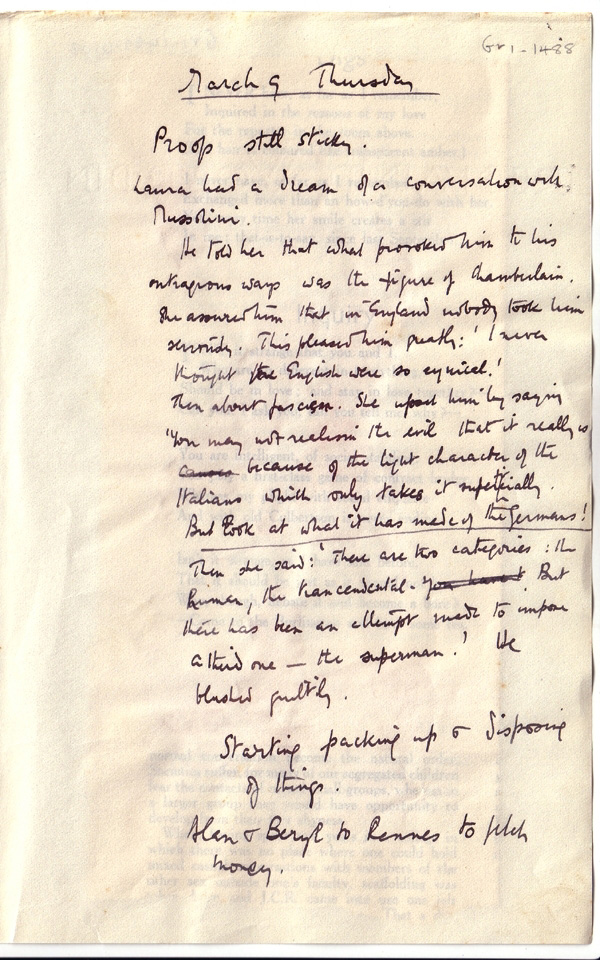 Gr1-1488
March 9 Thursday
Proofs still sticky.
Laura had a dream of a conversation with
Mussolini.
He told her that what provoked him to his
outrageous ways was the figure of Chamberlain.
She assured him that in England nobody took him
seriously. This pleased him greatly: 'I never
thought the English were so cynical.'
Then about fascism. She upset him by saying
'You may not realise the evil that it really is
causes because of the light character of the
Italians which only takes it superficially.
But look at what it has made of the Germans!
Then she said: 'There are two categories: the
human, the trancendental. you haven't But
there has been an attempt made to impose
a third one — the superman.' He
blushed guiltily.
Starting packing up & disposing
of things.
Alan & Beryl to Rennes to fetch
money.